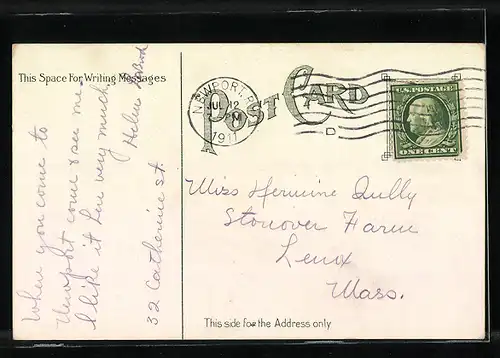 This Space For Writing Messages
When you come to
Newport come & see me
I like it here very much.
Helen
32 Catherine st.
NEWPORT, R.I.
JUL 12
PM
1911
POST CARD
D
U.S. POSTAGE
ONE CENT
Miss Hermine Tully
Stonover Farm
Lenox
Mass.
This side for the Address only